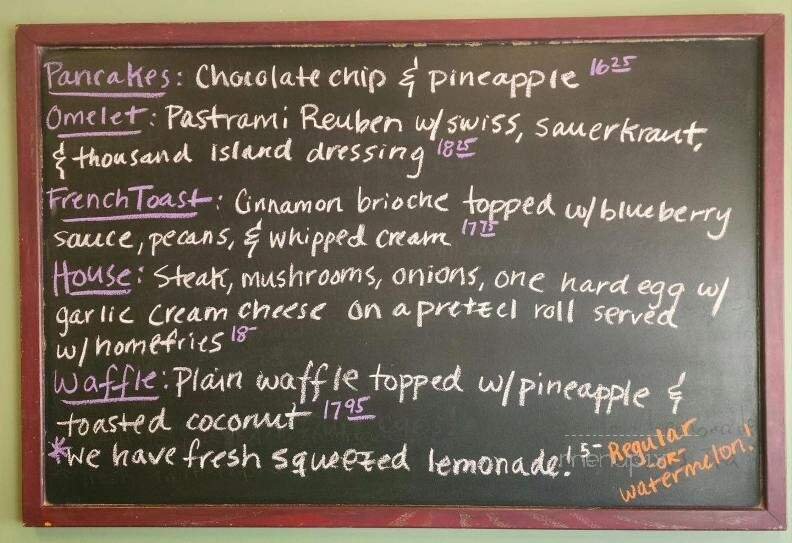 Pancakes: Chocolate chip & pineapple 16 25
Omelet: Pastrami Reuben w/swiss, sauerkraut,
& thousand Island dressing 18 25
French Toast: Cinnamon brioche topped w/blueberry
sauce, pecans, & whipped cream 17 75
House: Steak, mushrooms, onions, one hard egg w/
garlic cream cheese on a pretzel roll served
w/homefries 18-
Waffle: Plain waffle topped w/pineapple &
toasted coconut 17 95
*We have fresh squeezed lemonade! 5- Regular
or
watermelon!
menupix